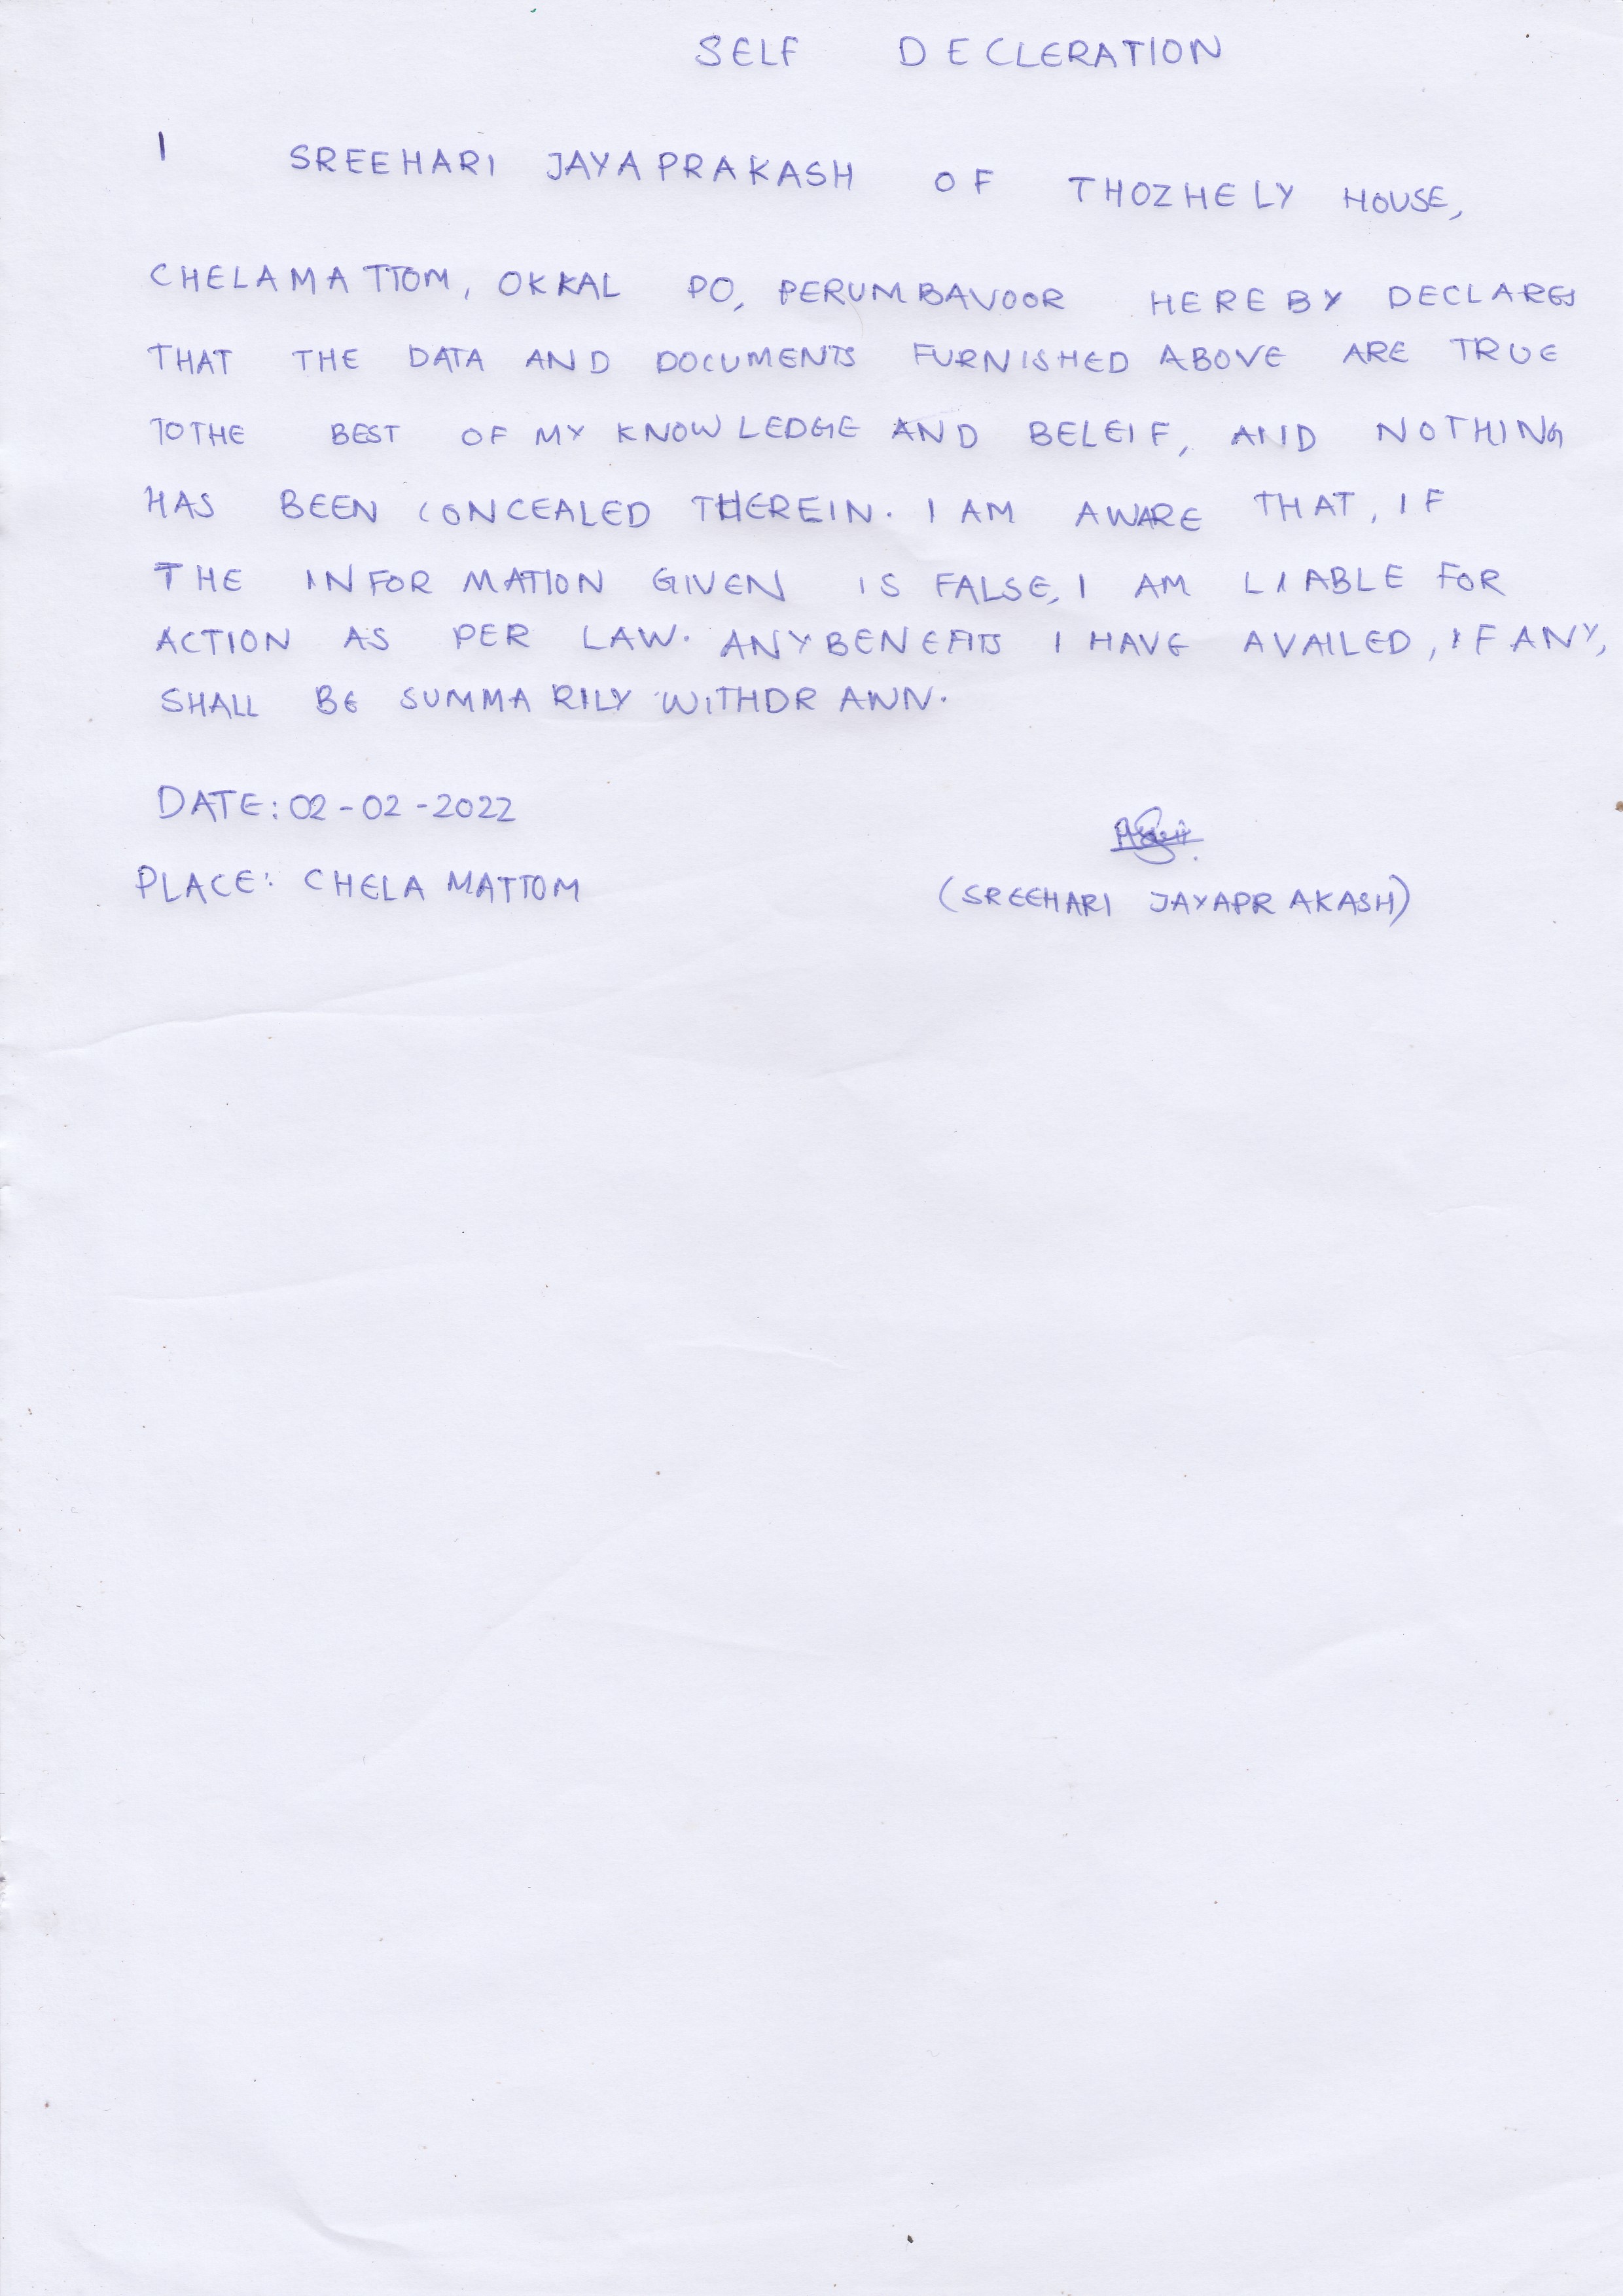 SELF DECLERATION
I SREEHARI JAYAPRAKASH OF THOZHELY HOUSE,
CHELAMATTOM, OKKAL PO, PERUMBAVOOR HEREBY DECLARES
THAT THE DATA AND DOCUMENTS FURNISHED ABOVE ARE TRUE
TO THE BEST OF MY KNOWLEDGE AND BELEIF, AND NOTHING
HAS BEEN CONCEALED THEREIN. I AM AWARE THAT, IF
THE INFORMATION GIVEN IS FALSE, I AM LIABLE FOR
ACTION AS PER LAW. ANY BENEFITS I HAVE AVAILED, IF ANY,
SHALL BE SUMMARILY WITHDRAWN.
DATE: 02-02-2022
PLACE: CHELAMATTOM
(SREEHARI JAYAPRAKASH)